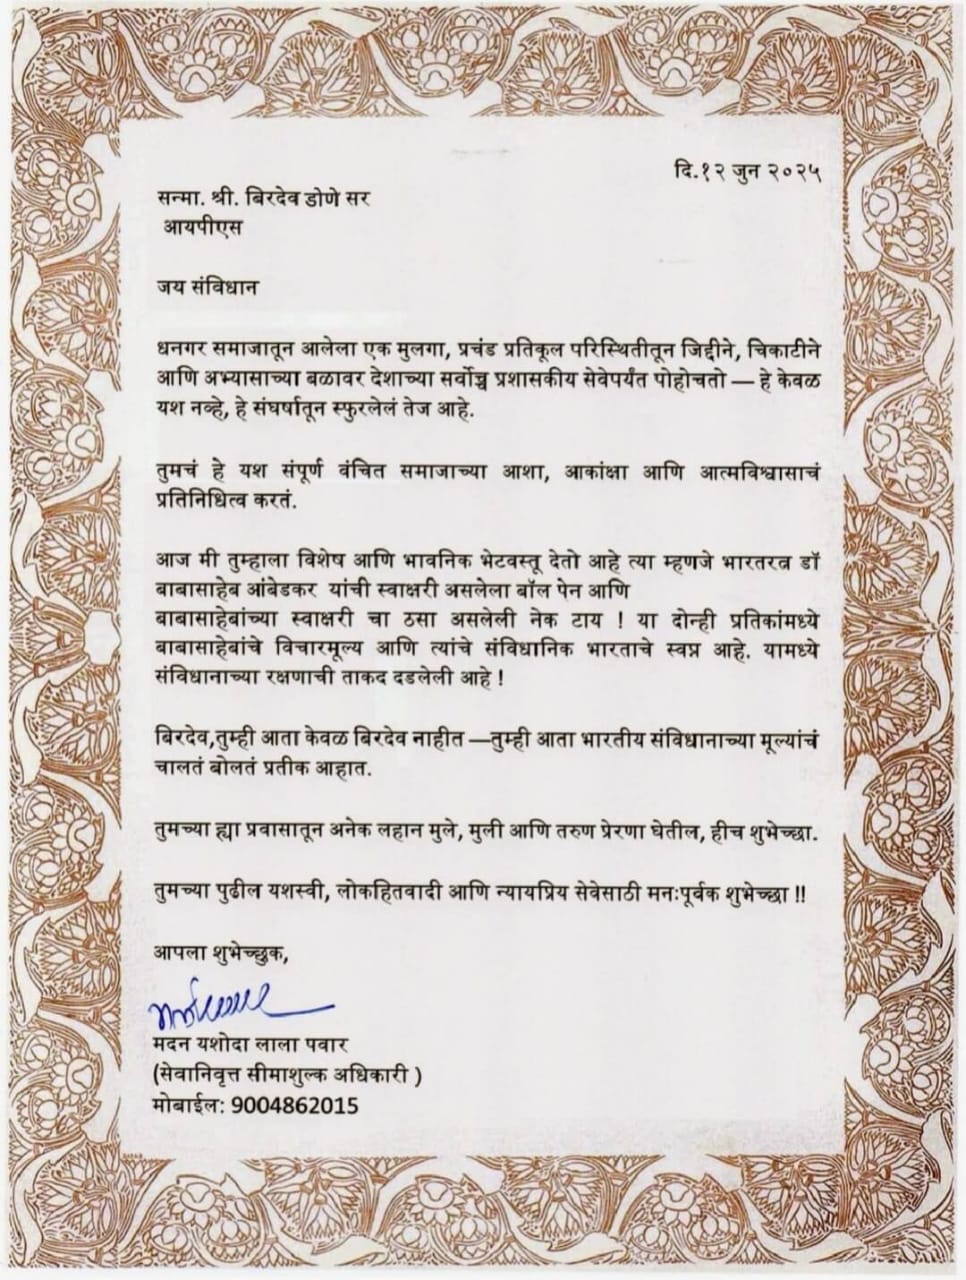 दि.१२ जुन २०२५
सन्मा. श्री. बिरदेव डोणे सर
आयपीएस
जय संविधान
धनगर समाजातून आलेला एक मुलगा, प्रचंड प्रतिकूल परिस्थितीतून जिद्दीने, चिकाटीने
आणि अभ्यासाच्या बळावर देशाच्या सर्वोच्च प्रशासकीय सेवेपर्यंत पोहोचतो — हे केवळ
यश नव्हे, हे संघर्षातून स्फुरलेलं तेज आहे.
तुमचं हे यश संपूर्ण वंचित समाजाच्या आशा, आकांक्षा आणि आत्मविश्वासाचं
प्रतिनिधित्व करतं.
आज मी तुम्हाला विशेष आणि भावनिक भेटवस्तू देतो आहे त्या म्हणजे भारतरत्न डॉ
बाबासाहेब आंबेडकर यांची स्वाक्षरी असलेला बॉल पेन आणि
बाबासाहेबांच्या स्वाक्षरी चा ठसा असलेली नेक टाय ! या दोन्ही प्रतिकांमध्ये
बाबासाहेबांचे विचारमूल्य आणि त्यांचे संविधानिक भारताचे स्वप्न आहे. यामध्ये
संविधानाच्या रक्षणाची ताकद दडलेली आहे !
बिरदेव,तुम्ही आता केवळ बिरदेव नाहीत —तुम्ही आता भारतीय संविधानाच्या मूल्यांचं
चालतं बोलतं प्रतीक आहात.
तुमच्या ह्या प्रवासातून अनेक लहान मुले, मुली आणि तरुण प्रेरणा घेतील, हीच शुभेच्छा.
तुमच्या पुढील यशस्वी, लोकहितवादी आणि न्यायप्रिय सेवेसाठी मनःपूर्वक शुभेच्छा !!
आपला शुभेच्छुक,
मदन यशोदा लाला पवार
(सेवानिवृत्त सीमाशुल्क अधिकारी )
मोबाईल: 9004862015